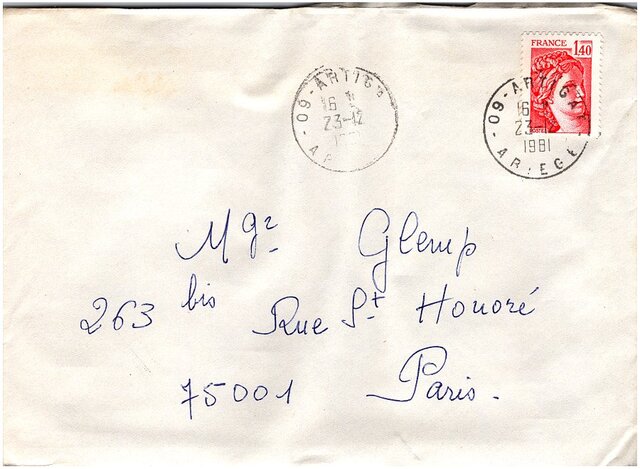 FRANCE 1,40
09-ARTIGAT
16
23-12
1981
ARIEGE
09-ARTIGA
16
23-12
Mgr Glemp
263 bis Rue St Honoré
75001 Paris.